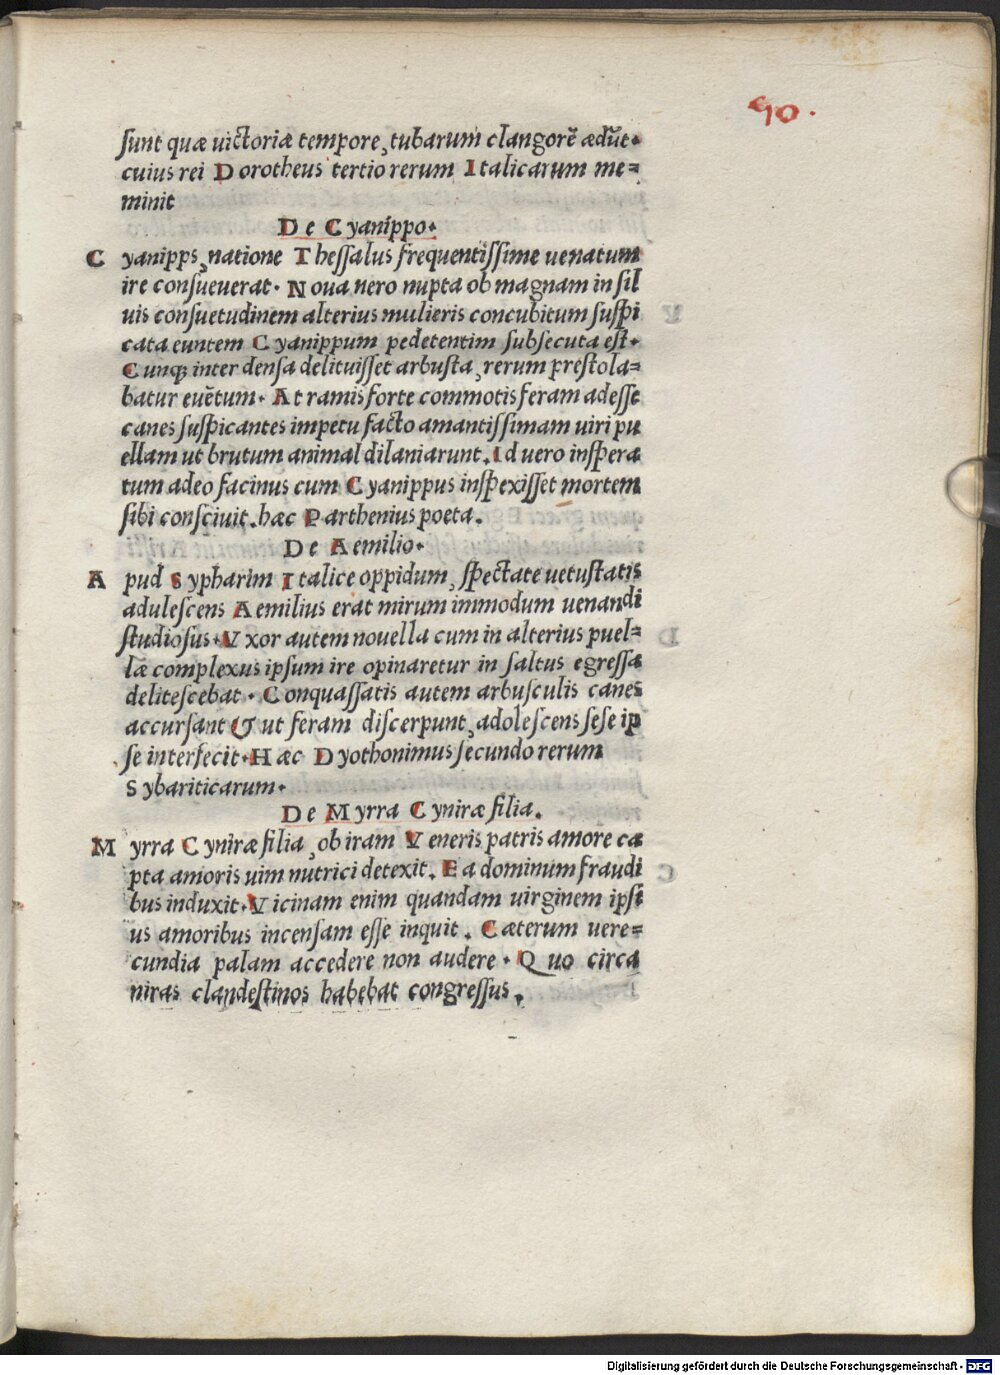 90.
sunt quæ uictoriæ tempore, tubarum clangorē ædūt.
cuius rei Dorotheus tertio rerum Italicarum me=
minit
De Cyanippo.
Cyanipps, natione Thessalus frequentissime uenatum
ire consueuerat. Noua nero nupta ob magnam in sil
uis consuetudinem alterius mulieris concubitum suspi
cata euntem Cyanippum pedetentim subsecuta est.
Cunq; inter densa delituisset arbusta, rerum prestola=
batur euētum. At ramis forte commotis feram adesse
canes suspicantes impetu facto amantissimam uiri pu
ellam ut brutum animal dilaniarunt. Id uero inspera
tum adeo facinus cum Cyanippus inspexisset mortem
sibi consciuit. hæc Parthenius poeta.
De Aemilio.
Apud Sypharim Italice oppidum, spectate uetustatis
adulescens Aemilius erat mirum immodum uenandi
studiosus. Vxor autem nouella cum in alterius puel=
læ complexus ipsum ire opinaretur in saltus egressa
delitescebat. Conquassatis autem arbusculis canes
accursant & ut feram discerpunt, adolescens sese ip
se interfecit. Hæc Dyothonimus secundo rerum
Sybariticarum.
De Myrra Cyniræ filia.
Myrra Cyniræ filia, ob iram Veneris patris amore ca
pta amoris uim nutrici detexit. Ea dominum fraudi
bus induxit. Vicinam enim quandam uirginem ipsi
us amoribus incensam esse inquit. Cæterum uere=
cundia palam accedere non audere. Quo circa
niras clandestinos habebat congressus.
Digitalisierung gefördert durch die Deutsche Forschungsgemeinschaft - DFG